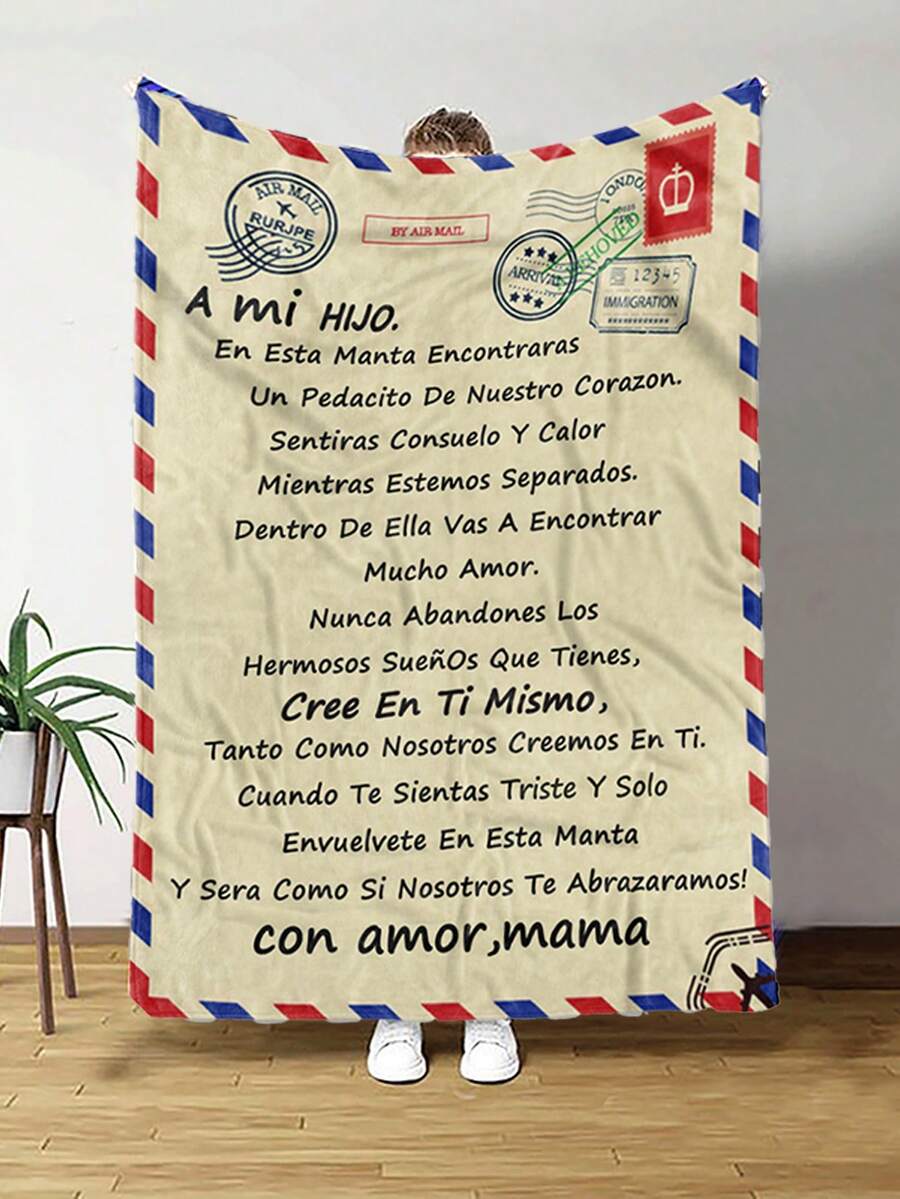 AIR MAIL
RURJPE
BY AIR MAIL
LONDON
ARRIVAL
12345
IMMIGRATION
A mi HIJO.
En Esta Manta Encontraras
Un Pedacito De Nuestro Corazon.
Sentiras Consuelo Y Calor
Mientras Estemos Separados.
Dentro De Ella Vas A Encontrar
Mucho Amor.
Nunca Abandones Los
Hermosos SueñOs Que Tienes,
Cree En Ti Mismo,
Tanto Como Nosotros Creemos En Ti.
Cuando Te Sientas Triste Y Solo
Envuelvete En Esta Manta
Y Sera Como Si Nosotros Te Abrazaramos!
con amor,mama